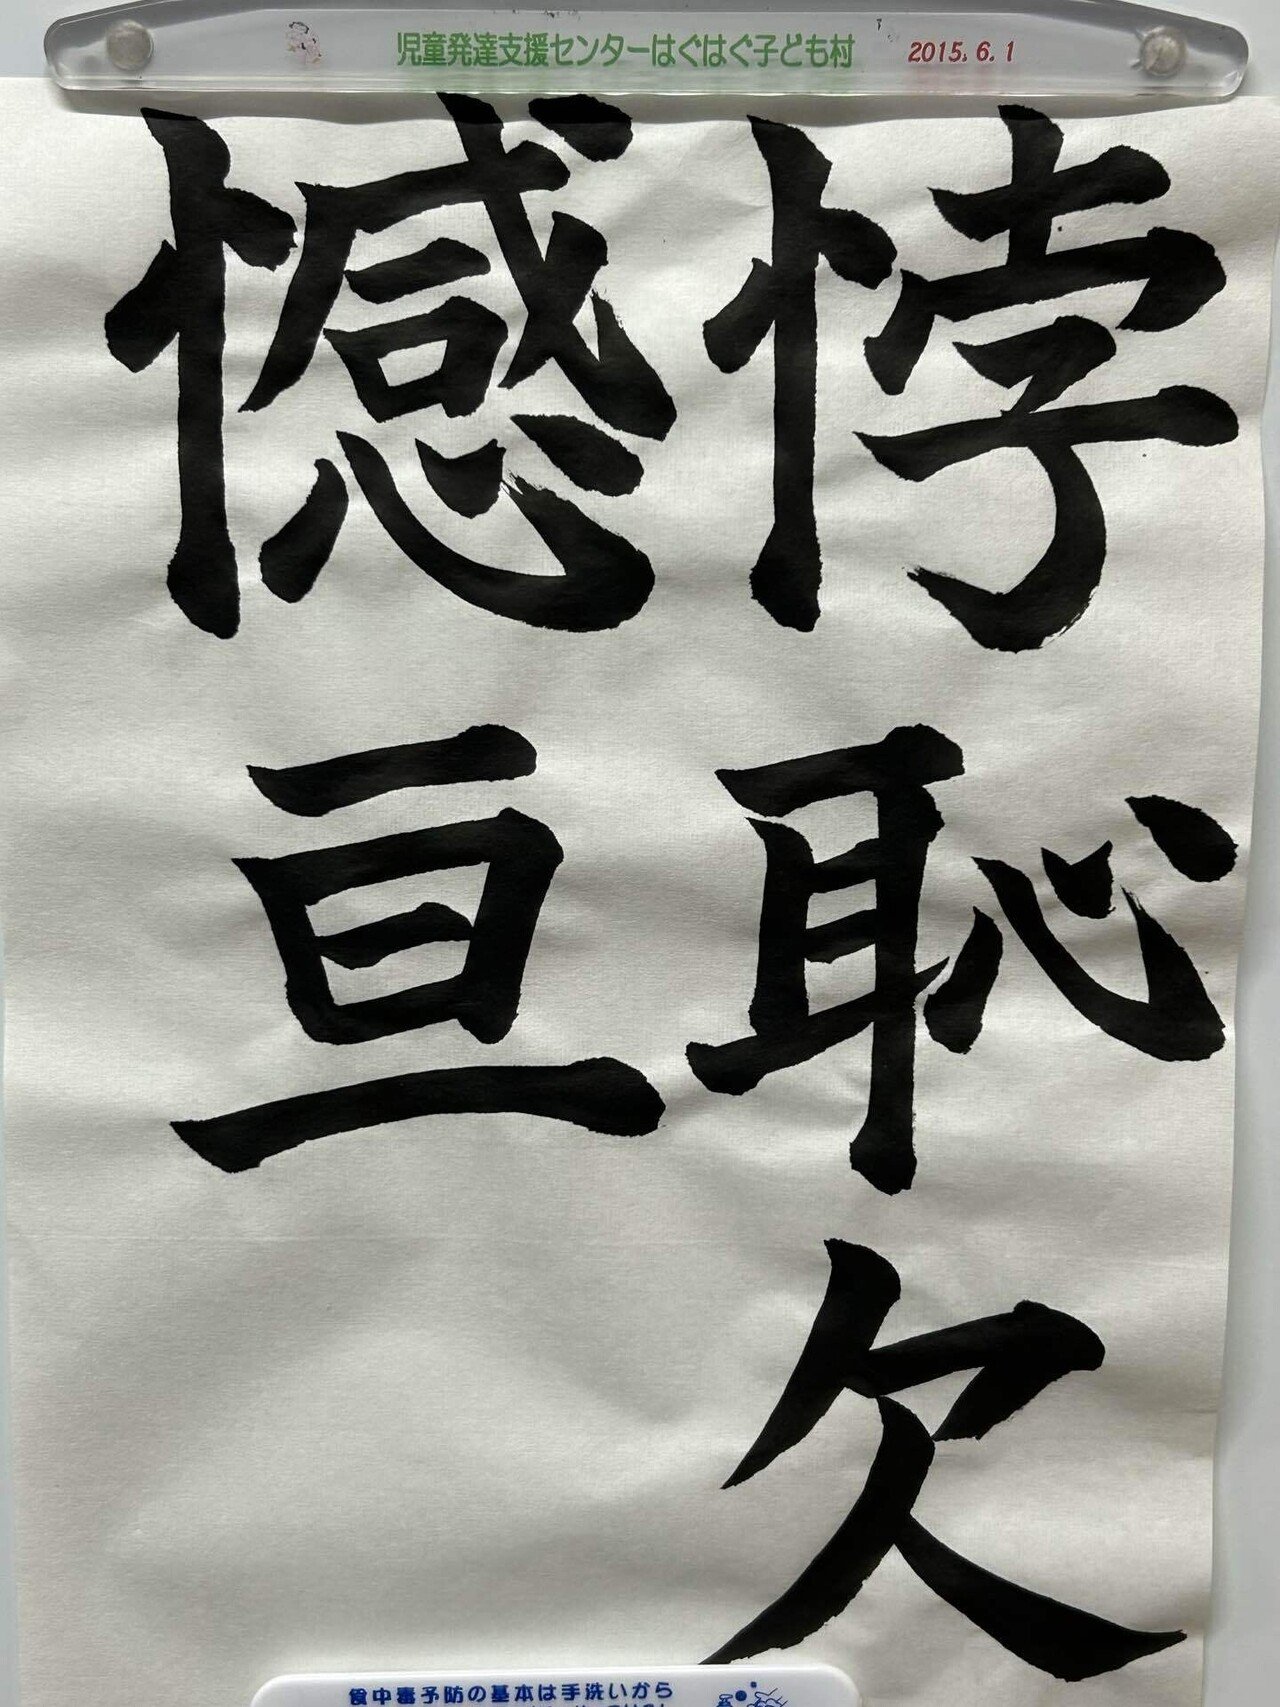 児童発達支援センターはぐはぐ子ども村 2015.6.1
悖恥欠
憾亘
食中毒予防の基本は手洗いから